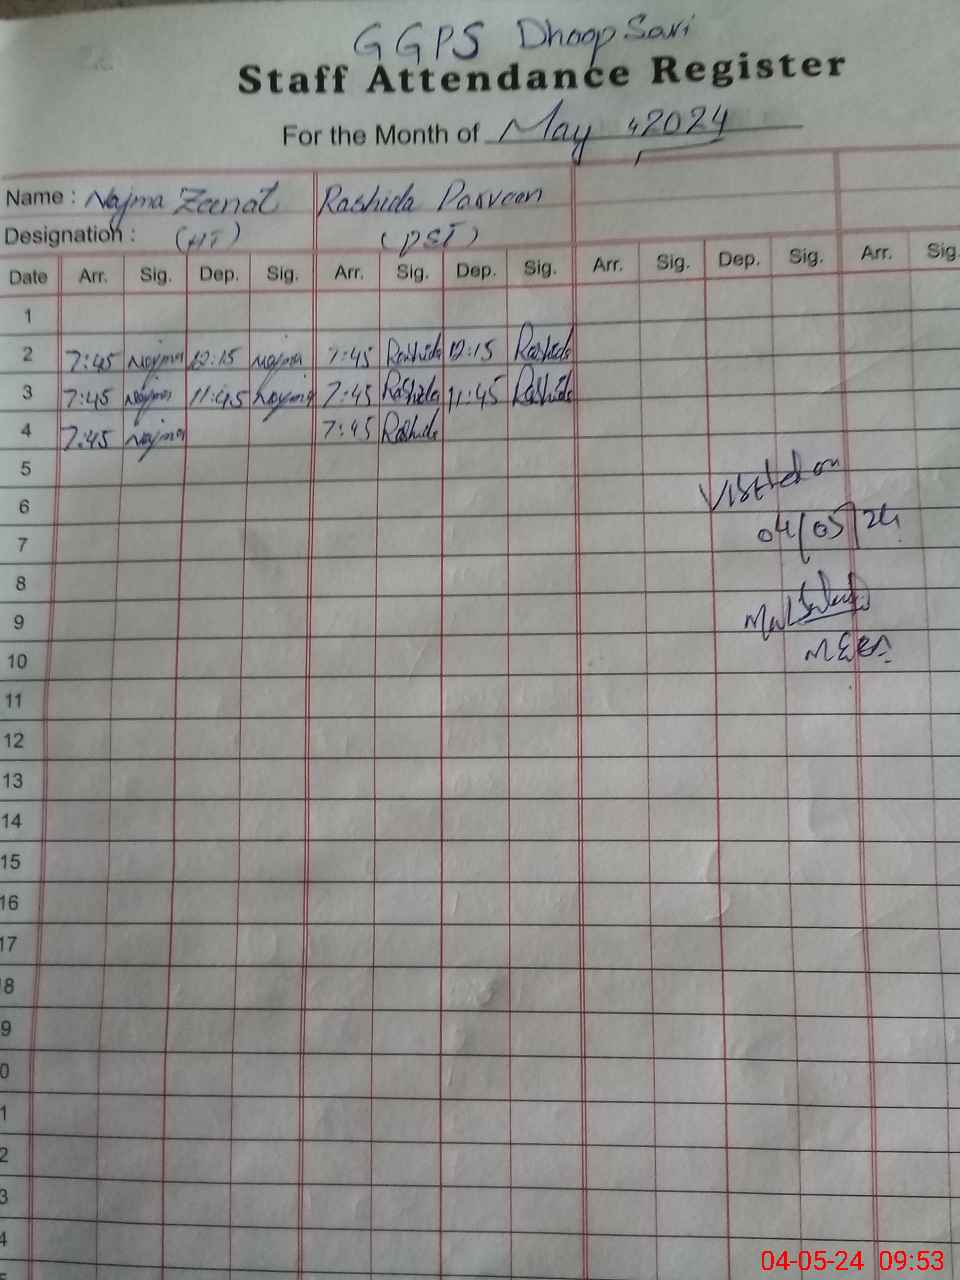 GGPS Dhoop Sari
Staff Attendance Register
For the Month of May, 2024
Name : Najma Zeenat Rashida Parveen
Designation : (HT) (PST)
Date Arr. Sig. Dep. Sig. Arr. Sig. Dep. Sig. Arr. Sig. Dep. Sig. Arr. Sig.
1
2 7:45 Najma 12:15 Najma 7:45 Rashida 12:15 Rashida
3 7:45 Najma 11:45 Najma 7:45 Rashida 11:45 Rashida
4 7:45 Najma 7:45 Rashida
5
6
7
8
9
10
11
12
13
14
15
16
17
8
9
0
1
2
3
4
Visited on
04/05/24
04-05-24 09:53